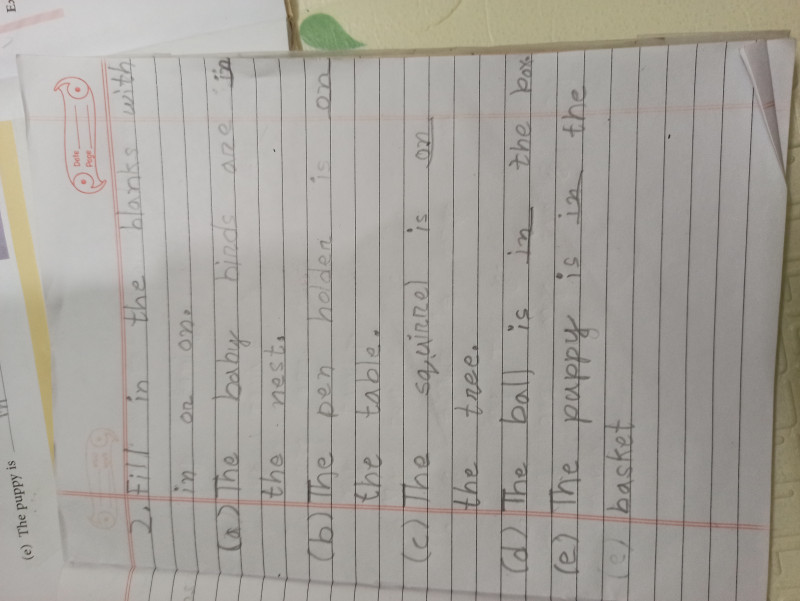 (e) The puppy is
Date
Page
2. Fill in the blanks with
in or on.
(a) The baby birds are in
the nest.
(b) The pen holder is on
the table.
(c) The squirrel is on
the tree.
(d) The ball is in the box
(e) The puppy is in the
(e) basket